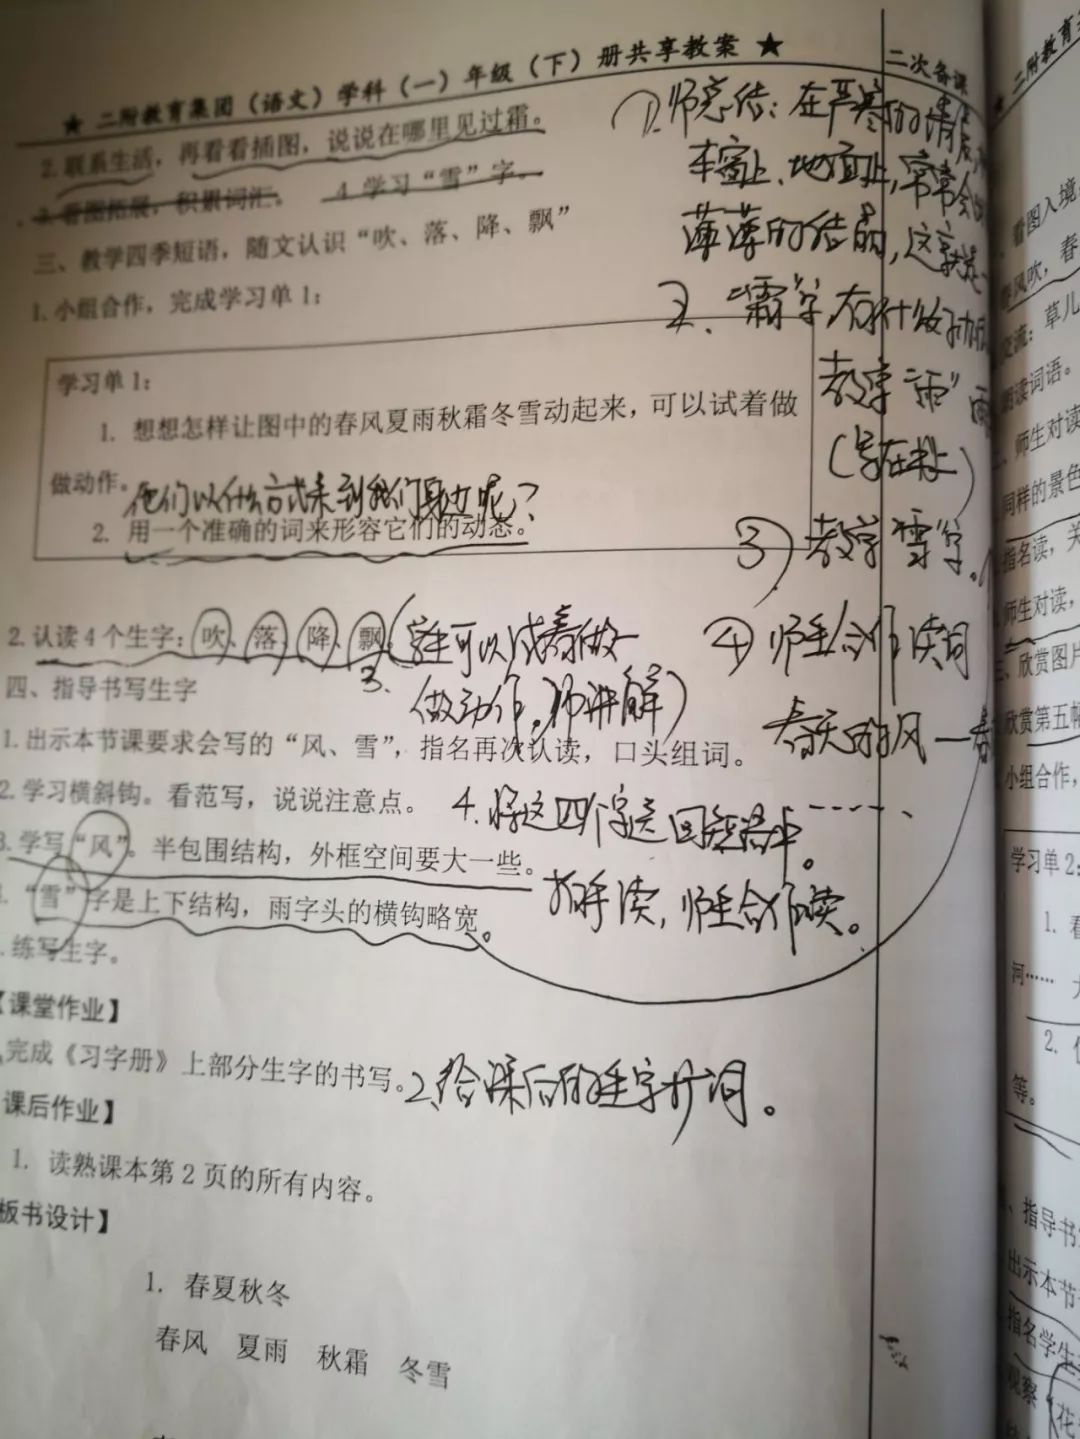 ★ 二附教育集团（语文）学科（一）年级（下）册共享教案 ★
二次备课
2. 联系生活，再看看插图，说说在哪里见过霜。
3. 看图拓展，积累词汇。 4 学习“雪”字。
三、教学四季短语，随文认识“吹、落、降、飘”
1. 小组合作，完成学习单 1：
学习单 1：
1. 想想怎样让图中的春风夏雨秋霜冬雪动起来，可以试着做
做动作。
他们以什么方式来到我们身边呢？
2. 用一个准确的词来形容它们的动态。
2. 认读 4 个生字：吹、落、降、飘
3. （学生可以试着做一
做动作，师讲解）
四、指导书写生字
1. 出示本节课要求会写的“风、雪”，指名再次认读，口头组词。
2. 学习横斜钩。看范写，说说注意点。
4. 将这四个字送回短语中。
3. 学写“风”。半包围结构，外框空间要大一些。
“雪”字是上下结构，雨字头的横钩略宽。
指名读，师生合作读。
练写生字。
【课堂作业】
完成《习字册》上部分生字的书写。
2、给课后的生字扩词。
课后作业】
1. 读熟课本第 2 页的所有内容。
板书设计】
1. 春夏秋冬
春风 夏雨 秋霜 冬雪
① 师总结：在严寒的清晨，
地面上，常常会
薄薄的结晶，这就是
2、“霜”字有什么好
教学“雨”
③ 教学“雪”字。
④ 师生合作读词
春天的风—春
二附教育
看图入境
春风吹，春
交流：草儿
朗读词语。
师生对读
同样的景色
指名读，关
师生对读，
三、欣赏图片
欣赏第五幅
小组合作，
学习单 2：
1. 看
河……
2.
等。
、指导书
出示本节
指名学生
观察（花